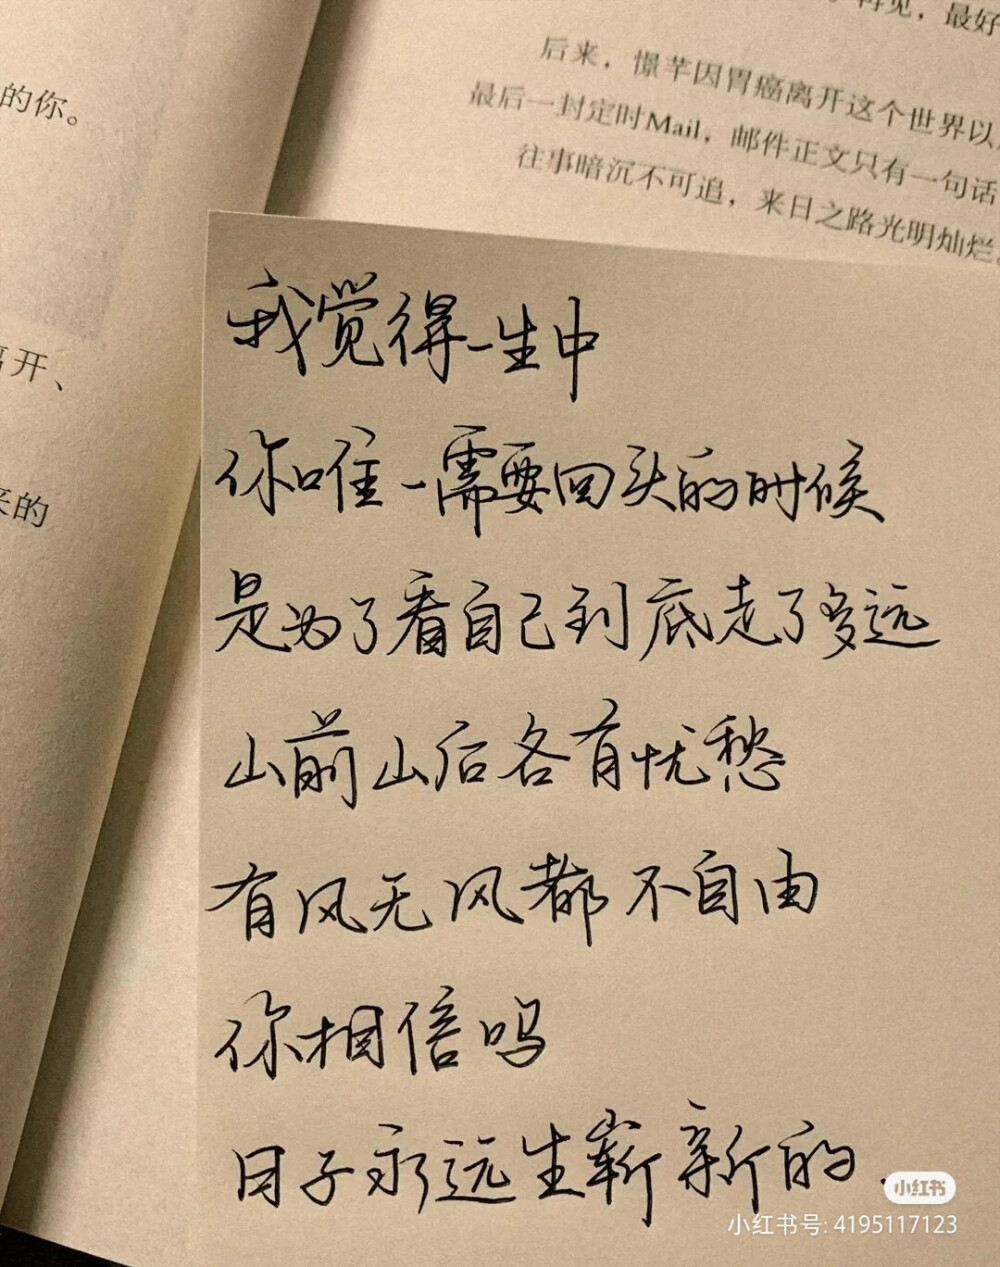 再见，最好
的你。
后来，憬芊因胃癌离开这个世界以
最后一封定时Mail，邮件正文只有一句话
往事暗沉不可追，来日之路光明灿烂。
开、
来的
我觉得一生中
你唯一需要回头的时候
是为了看自己到底走了多远
山前山后各有忧愁
有风无风都不自由
你相信吗
日子永远生崭新的.
小红书
小红书号: 4195117123